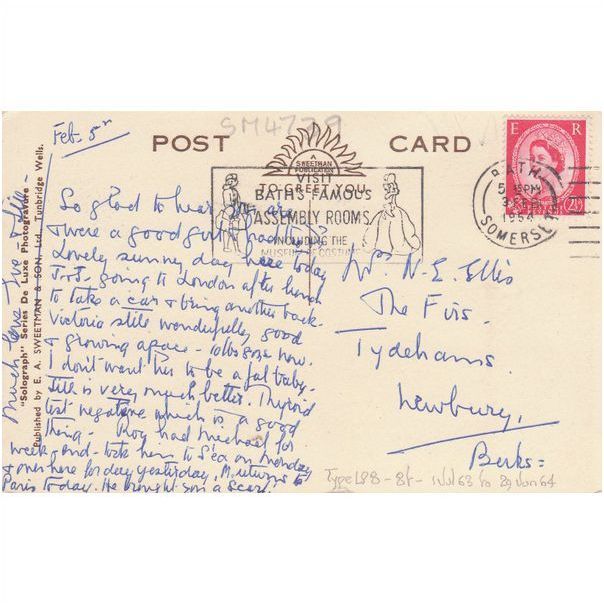 SM4779
POST CARD
A
SWEETMAN
PUBLICATION
TO GREET YOU
VISIT
BATH'S FAMOUS
ASSEMBLY ROOMS
INCLUDING THE
MUSEUM OF COSTUME
E R
2½
BATH
5 PM
FEB
SOMERSET
"Solograph" Series De Luxe Photogravure
Published by E. A. SWEETMAN & SON, Ltd., Tunbridge Wells.
Feb. 5th
So glad to hear
were a good girl
Lovely sunny day here today
going to London after lunch
to take a car & bring another back.
Victoria still wonderfully good
& growing apace - 10lbs 9ozs now.
I don't want her to be a fat baby.
is very much better. Thyroid
test negative which is a good
thing. Roy had Michael for
week-end - took him to Sea on Monday
& over here for day yesterday. M. returns to
Paris today. He brought a scarf.
Much love
Mrs. N. E. Ellis
The Firs.
Tydehams.
Newbury.
Berks =
Type L98 - 8t - 1 Jul 63 to 29 Jun 64